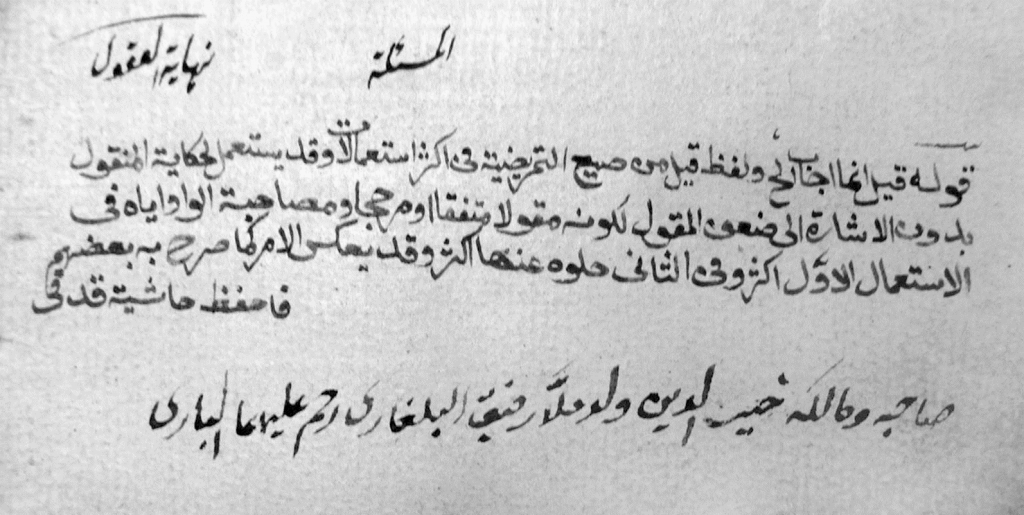 المسئلة نهاية العقول
قوله قيل انما اجاب الخ ولفظ قيل من صيغ التمريضية فى اكثر استعمالات وقد يستعمل لحكاية المنقول
بدون الاشارة الى ضعف المقول لكونه مقولا متفقا او مرجحا ومصاحبة الواو اياه فى
الاستعمال الاوّل اكثر وفى الثانى خلوه عنها اكثر وقد ينعكس الامر كما صرح به بعضهم
فاحفظ حاشية قدقى
صاحبه ومالكه خير الدين ولد ملّا رفيق البلغارى رحم عليهما البارى